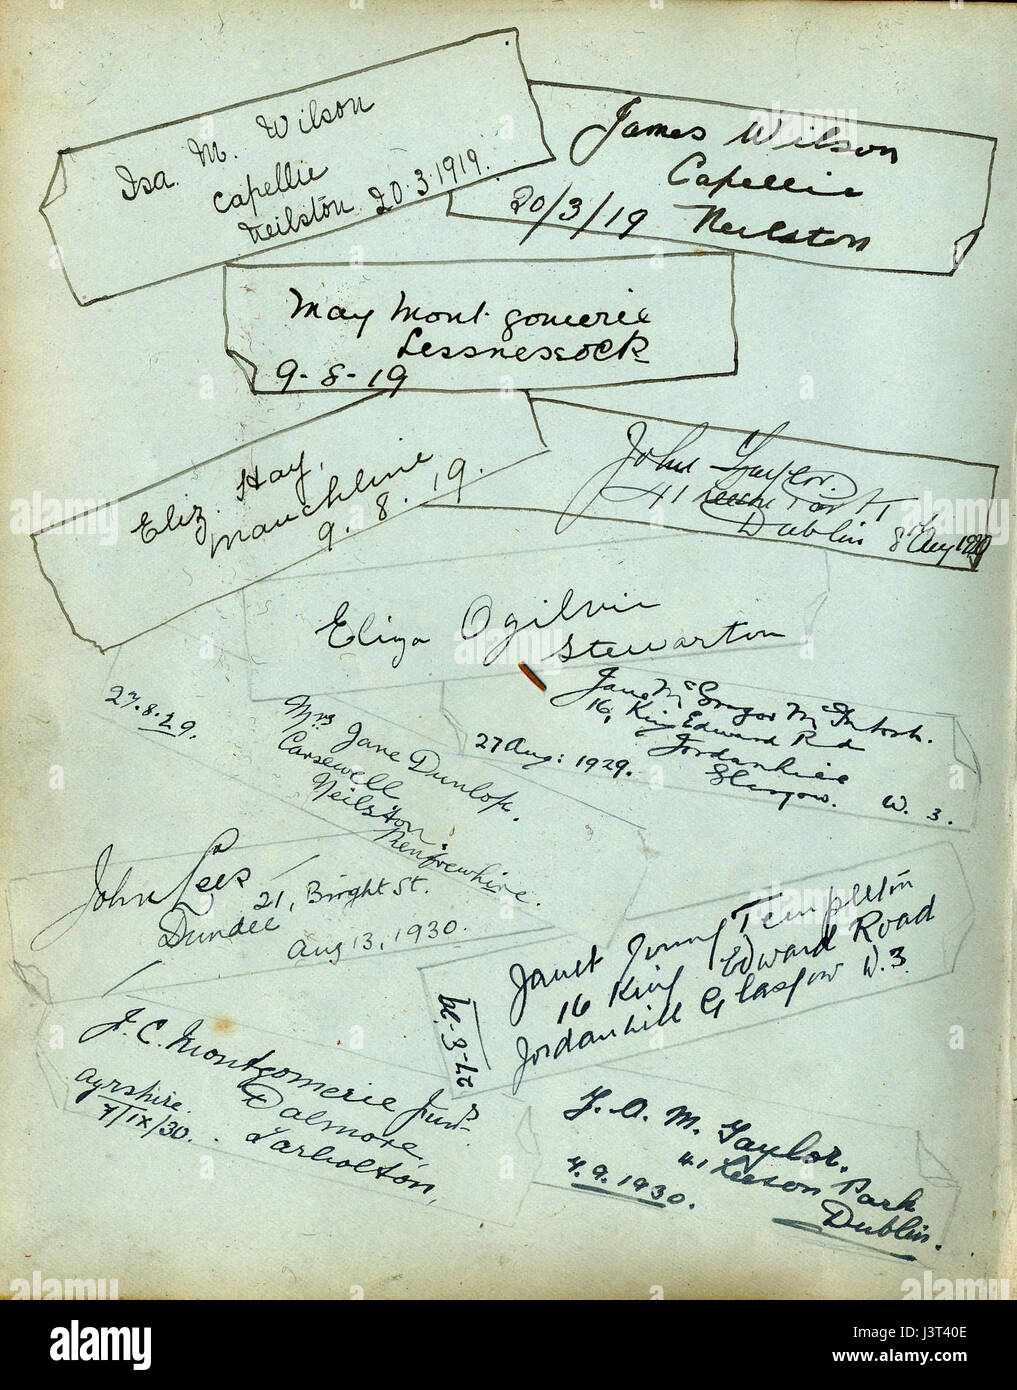 Isa. M. Wilson
Capellie
Neilston 20.3.1919.
James Wilson
Capellie
20/3/19 Neilston
May Montgomerie
Lessnessock
9-8-19
Eliz. Hay,
Mauchline
9.8.19.
John Taylor.
41 Park
Dublin 8th Aug
Eliza Ogilvie
Stewarton
27.8.29.
Mrs Jane Dunlop.
Carsewell
Neilston
Renfrewshire.
Jane McGregor McIntosh.
16, King Edward Rd
Jordanhill
27 Aug: 1929. Glasgow. W. 3.
John Lees
21, Bright St.
Dundee
Aug 13, 1930.
Janet Templeton
16 King Edward Road
Jordanhill Glasgow W.3.
27-8-29
J. C. Montgomerie Junr.
Dalmore,
Tarbolton,
Ayrshire.
7/IX/30.
J. A. M. Taylor.
41 Leeson Park
Dublin.
7.9.1930.
alamy
Image ID: J3T40E
www.alamy.com